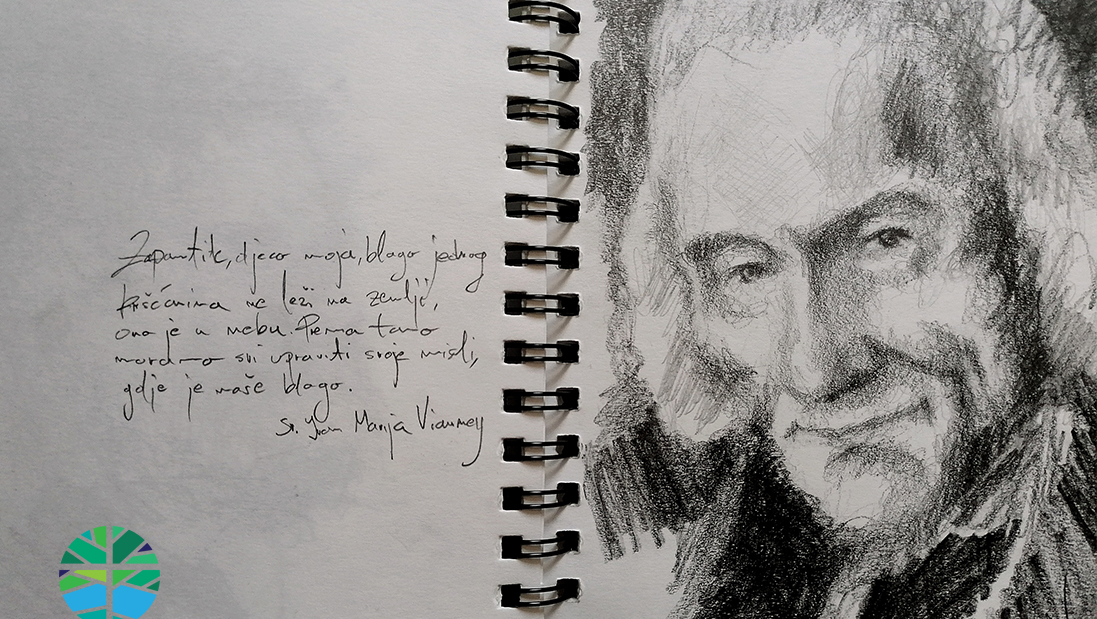 Zapamtite, djeco moja, blago jednog
kršćanina ne leži na zemlji,
ono je u nebu. Prema tamo
moramo svi upraviti svoje misli,
gdje je naše blago.
Sv. Ivan Marija Vianney